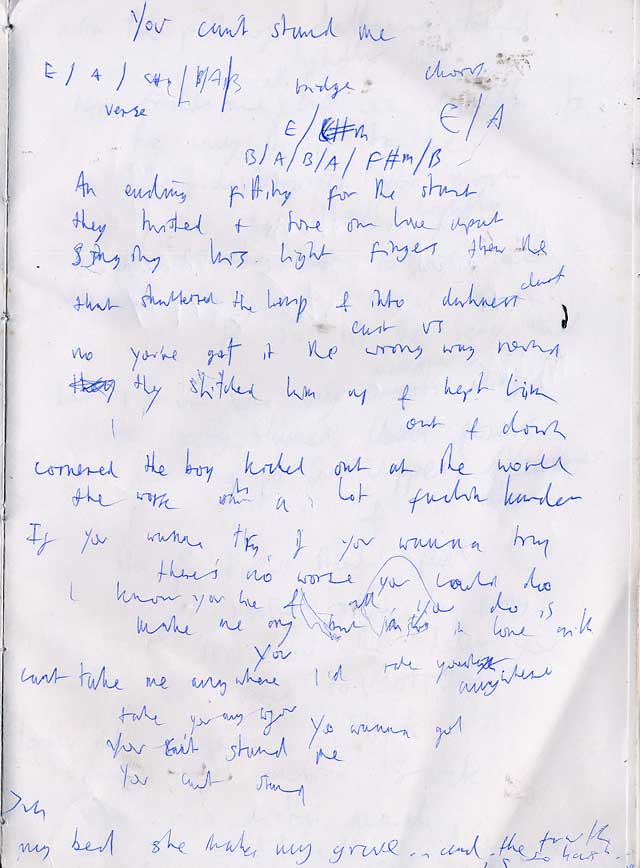 You can't stand me
E / A / C#m / B/A/B bridge chorus
verse
E / C#m E / A
B / A / B / A / F#m / B
An ending fitting for the start
they twisted & tore our love apart
light fingers threw the
dart
that shattered the lamp & into darkness
cast us
no you've got it the wrong way round
they stitched him up & kept him
out & down
cornered the boy kicked out at the world
the world a lot fuckin harder
If you wanna try, if you wanna try
there's no worse you could do
I know you lie & all you do is
make me in love with
you
can't take me anywhere I'd
anywhere
take you anywhere you wanna go
You can't stand me
You can't stand
my bed she makes my grave... and the truth